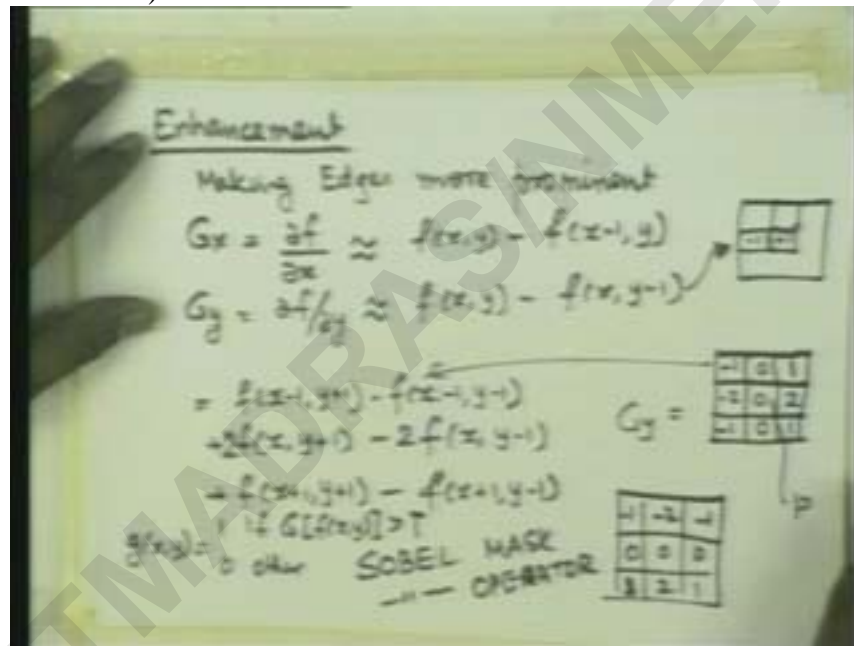 Enhancement
Making Edges more prominent
Gx = ∂f/∂x ≈ f(x,y) - f(x-1, y)
Gy = ∂f/∂y ≈ f(x,y) - f(x, y-1)
-1 +1
= f(x-1, y+1) - f(x-1, y-1)
+2f(x, y+1) - 2f(x, y-1)
+ f(x+1, y+1) - f(x+1, y-1)
Gy =
-1 0 1
-2 0 2
-1 0 1
g(x,y) = 1 if G[f(x,y)] > T
0 other
SOBEL MASK
—〃— OPERATOR
-1 -2 -1
0 0 0
1 2 1
TMADRAS/NME